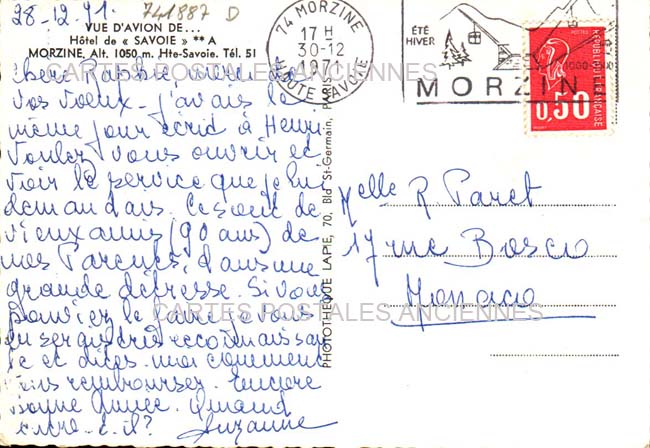 28-12-71. 741887 D
VUE D'AVION DE...
Hôtel de « SAVOIE » ** A
MORZINE, Alt. 1050 m. Hte-Savoie. Tél. 51
vos voeux - j'avais le
même jour écrit à Henri
Voulez vous ouvrir et
voir le service que je lui
demandais. Ce sont de
vieux amis (90 ans) de
mes Parents, dans une
grande détresse. Si vous
pouviez le faire je vous
en serais très reconnaissan
te et dites-moi comment
vous rembourser. Encore
Bonne Année. Quand
Suzanne
PHOTOTHEQUE LAPIE, 70, Bld St-Germain, PARIS
74 MORZINE
17 H
30-12
1971
HAUTE SAVOIE
ÉTÉ
HIVER
MORZIN
POSTES
REPUBLIQUE FRANÇAISE
0,50
Melle R. Paret
17 rue Bosio
Monaco
CARTES POSTALES ANCIENNES
CARTES POSTALES ANCIENNES